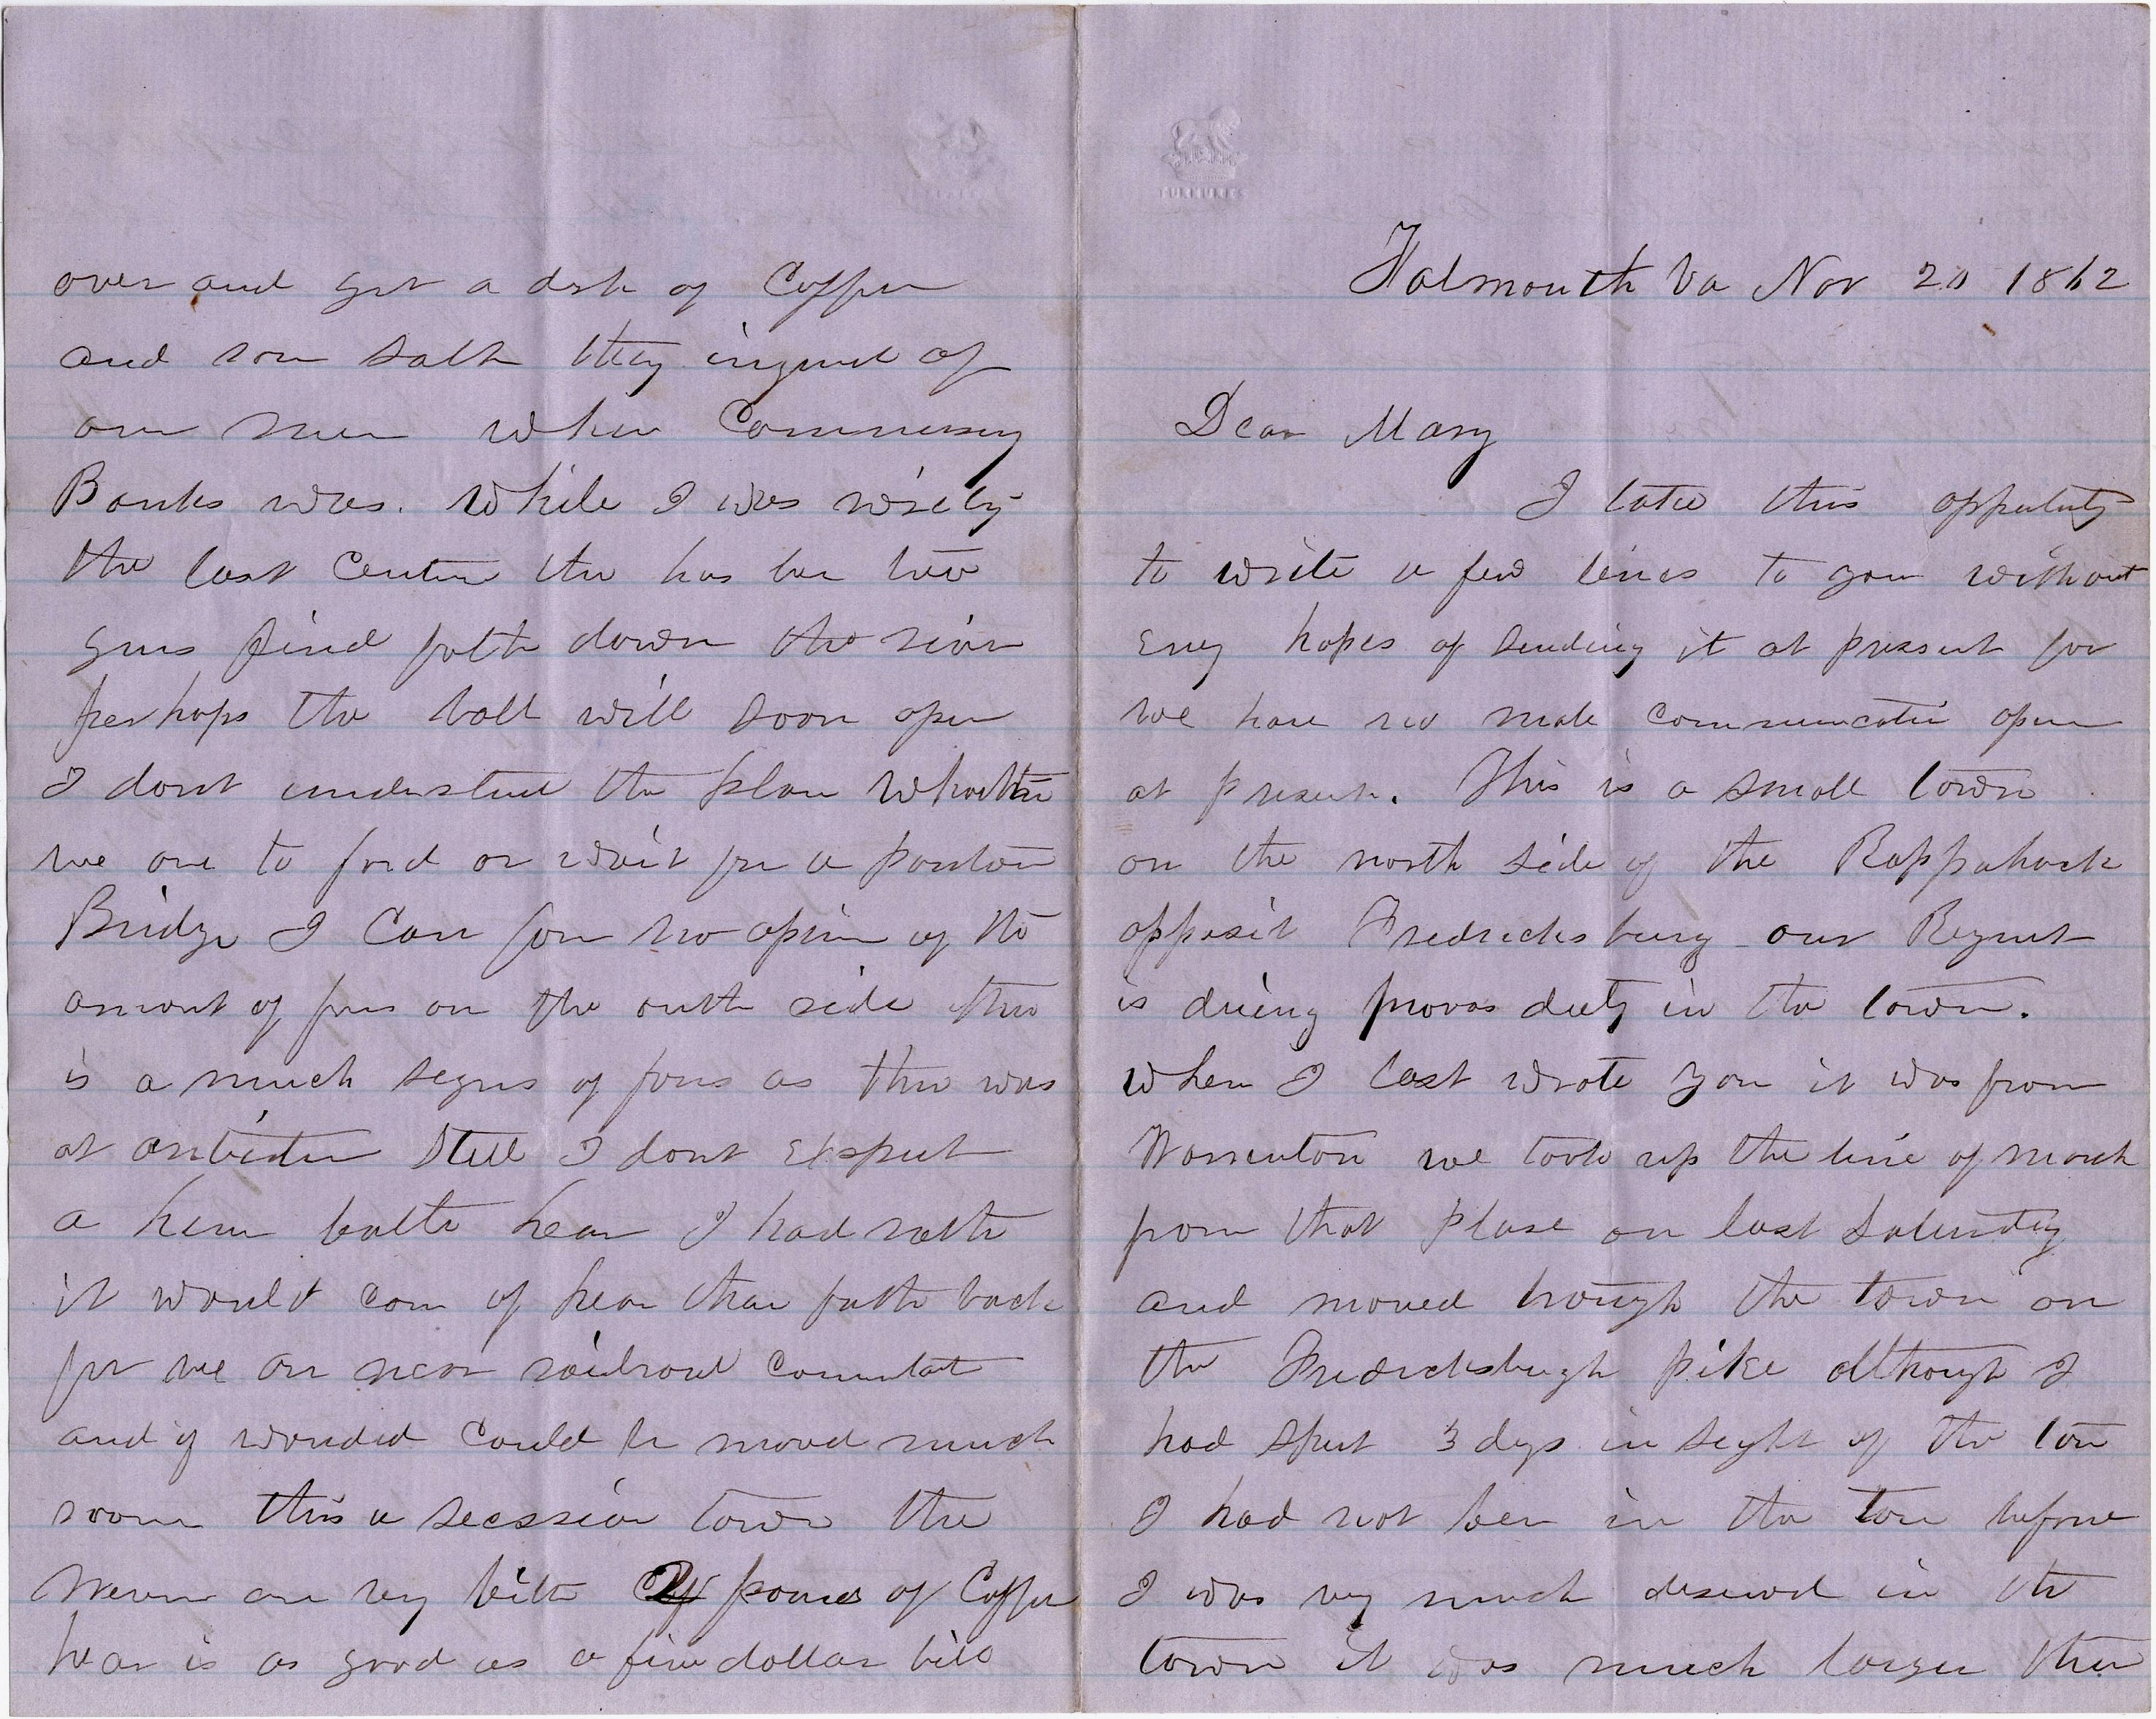 Falmouth Va Nov 20 1862
Dear Mary
I take this oppertuty
to write a few lines to you without
eny hopes of sending it at present for
we have no male communicatie open
at present. This is a small town
on the north side of the Rappahack
opposit Fredricksburg our Regmt
is dueing provos duty in the town.
when I last wrote you it was from
Warrenton we took up the line of march
from that plase on last Saturday
and moved trough the town on
the Fredricksburgh pike although I
had spent 3 days in seght of the town
I had not been in the town before
I was very much deseved in the
town it was much larger then
over and get a dish of Coffee
and som salt they inqured of
our men wher Commissery
Banks was. while I was writig
the last Centence ther has ben two
guns fired futher down the river
perhaps the ball will soon open
I dont understand the plan whather
we are to ford or wait for a pontoon
Bridge I can form no opinion of the
amont of fors on the outh side ther
is a much segns of fors as ther was
at antietam Still I dont expect
a heavy battle hear I had rather
it would com of hear than futher back
for we are near railroad
and if wonded could be moved much
sooner this a secession town the
wemen are very bitter of Coffee
hear is as good as a five dollar bill